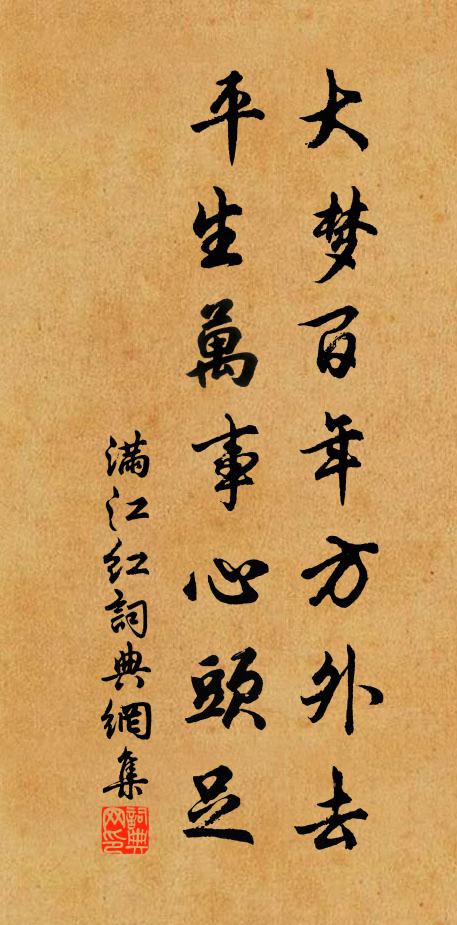 大梦百年方外去
平生萬事心頭足
满江红詞典網集
詞典网印